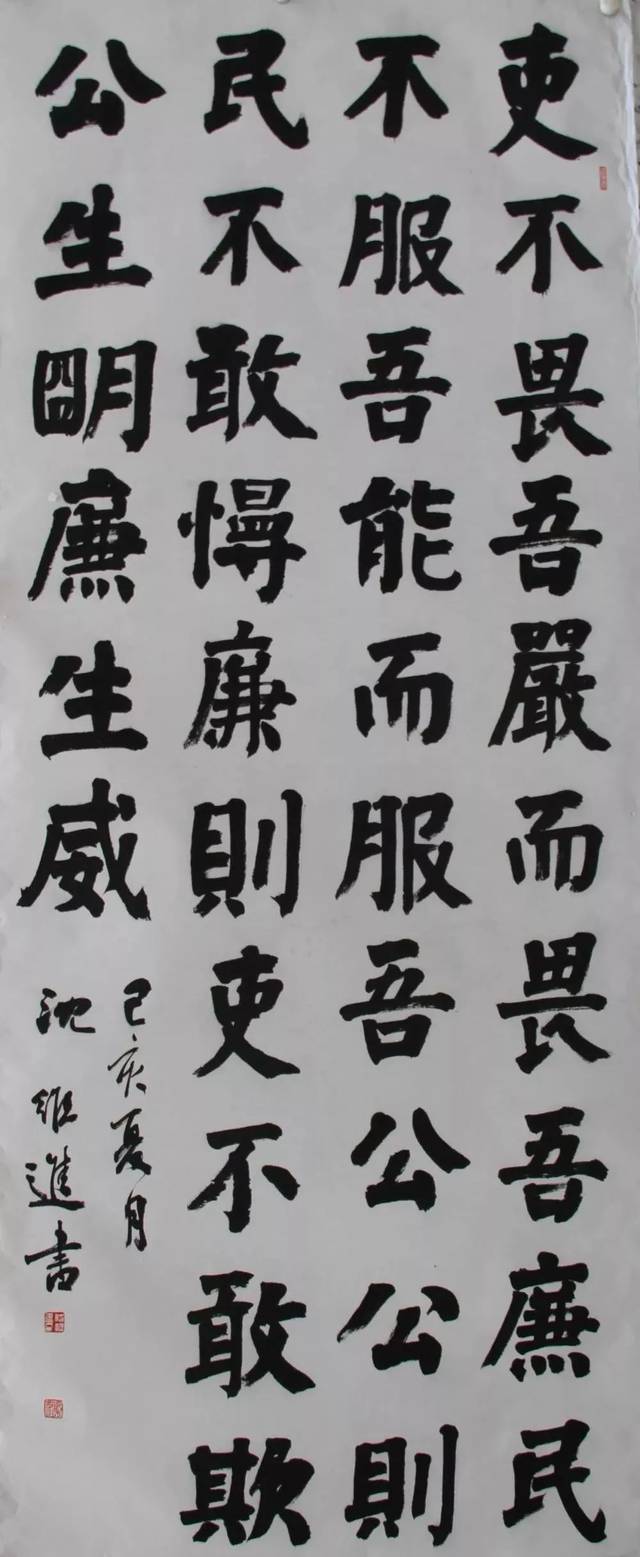 吏不畏吾嚴而畏吾廉民
不服吾能而服吾公公則
民不敢慢廉則吏不敢欺
公生明廉生威
己亥夏月
沈維進書